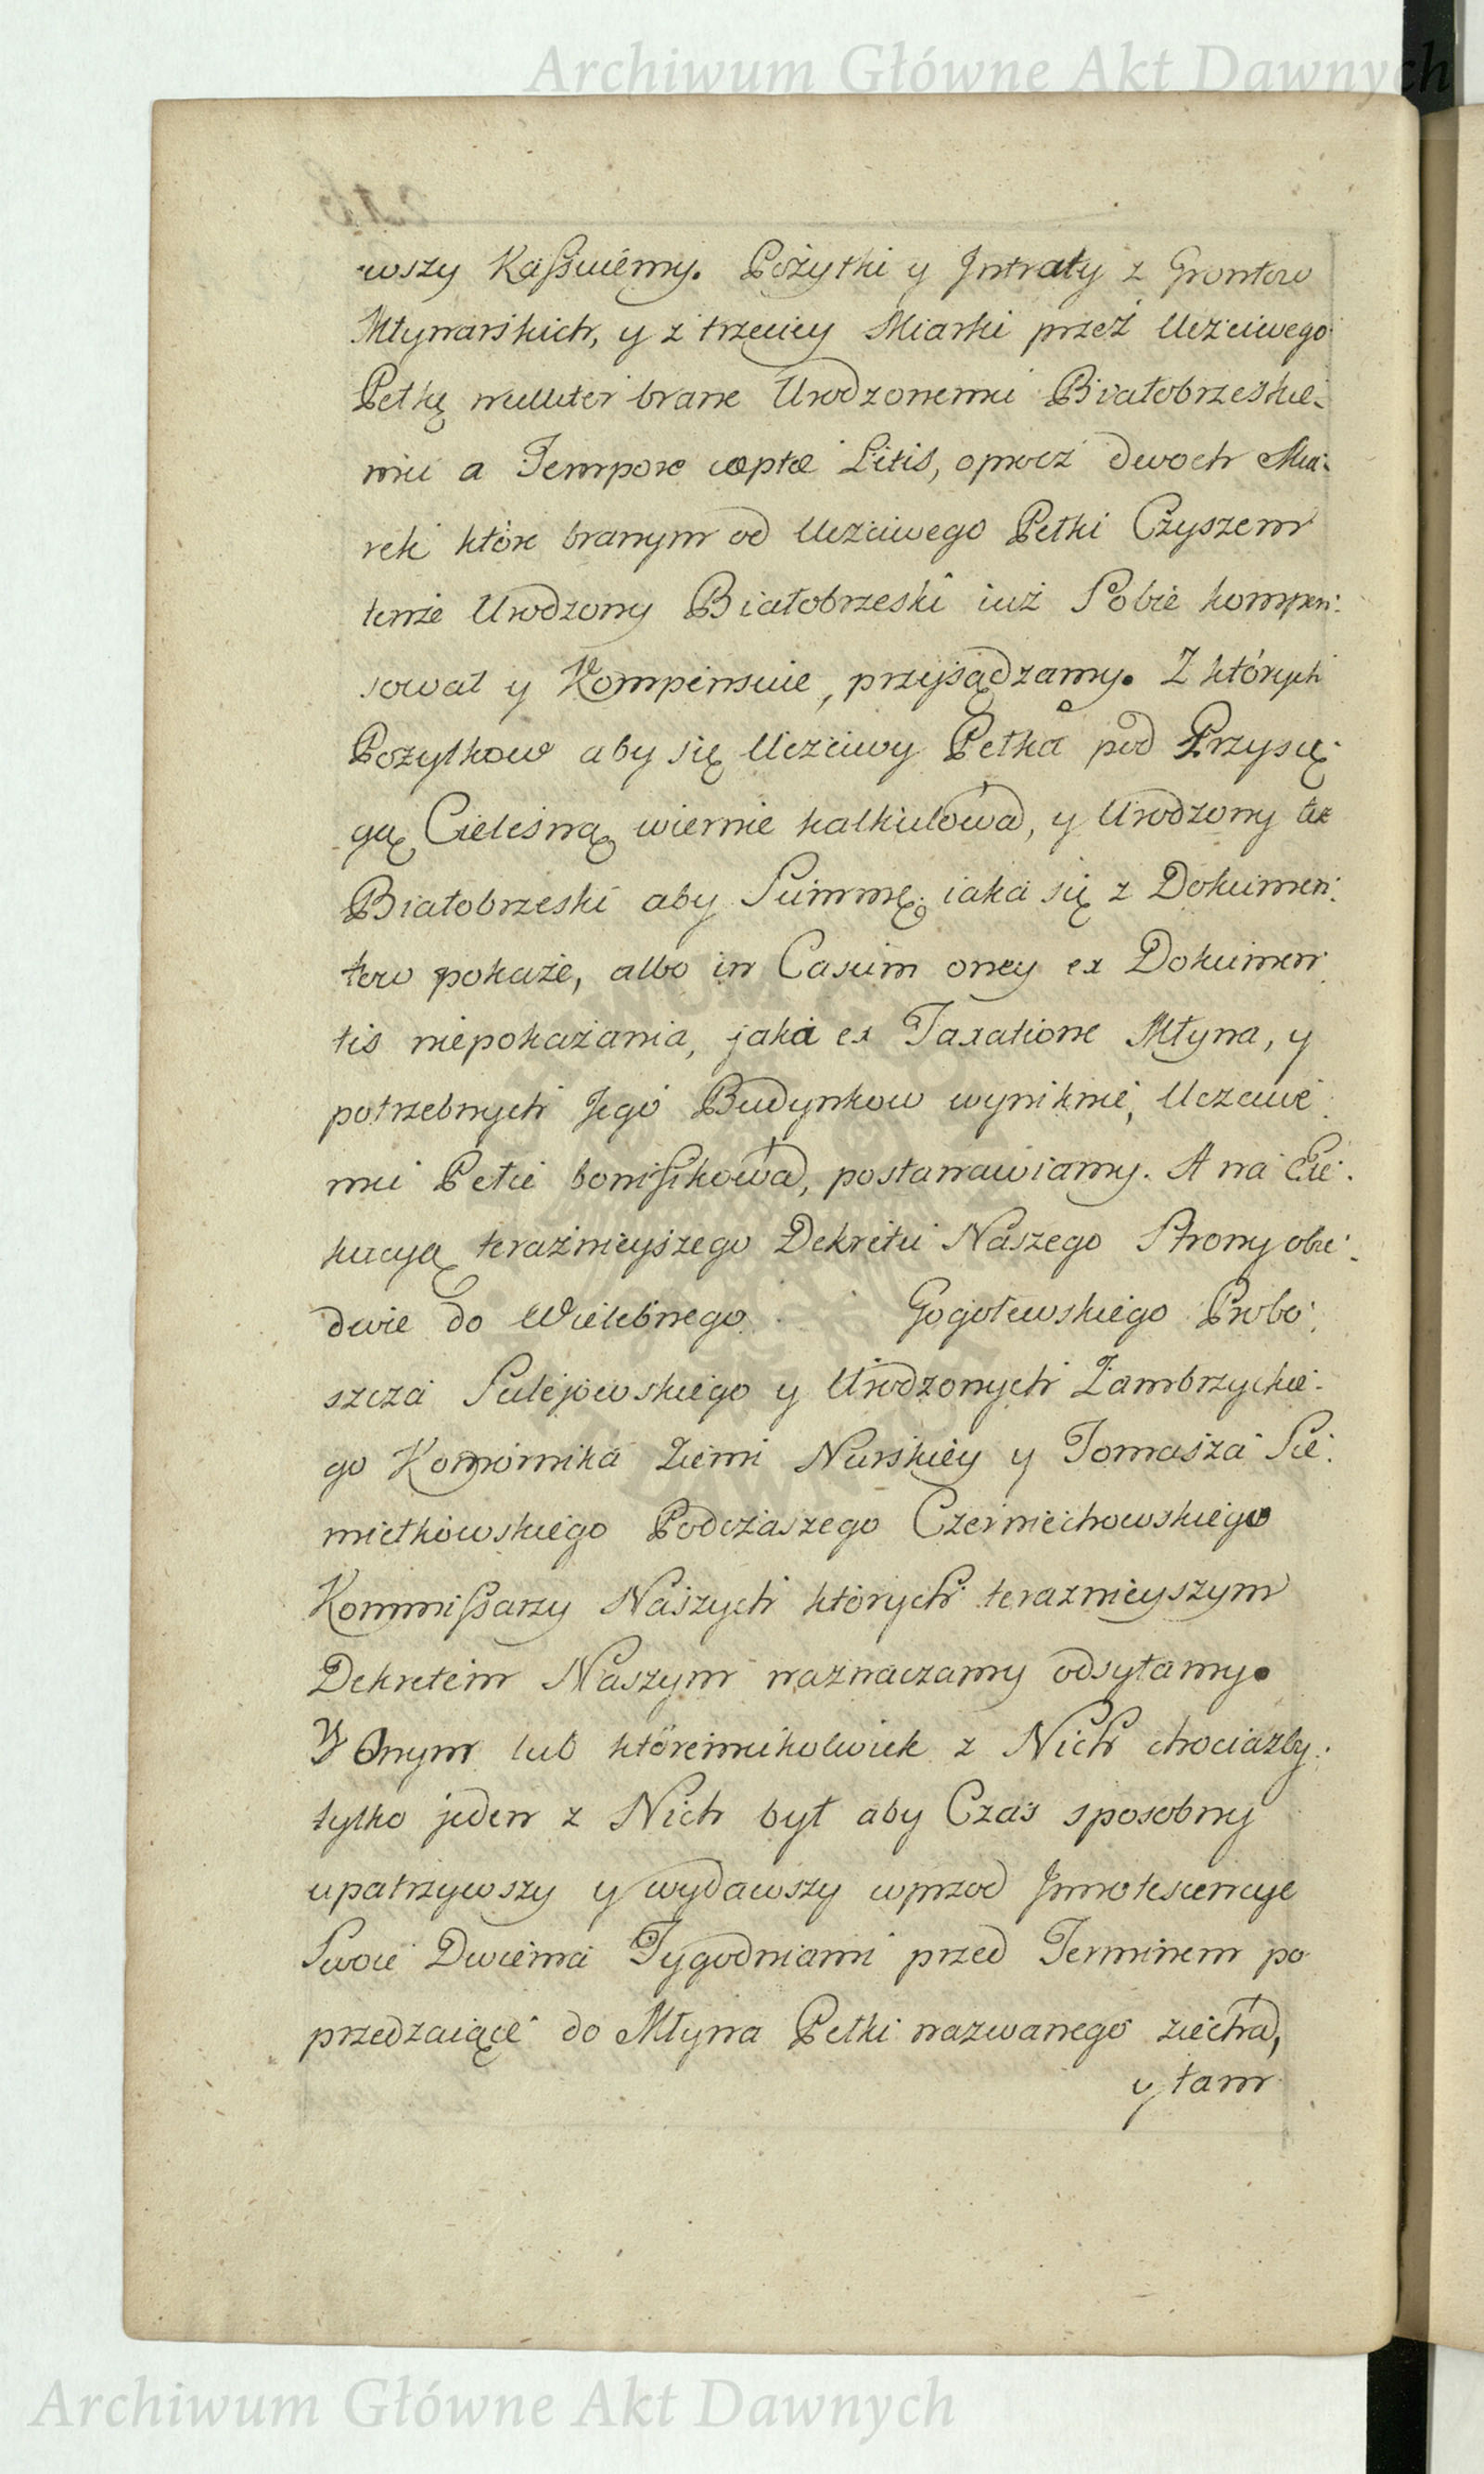 Archiwum Główne Akt Dawnych
wszy Kassuiemy. Pożytki y Jntraty z Grontow
Młynarskich, y z trzeciey Miarki przez Uczciwego
Petkę nulliter brane Urodzonemu Białobrzeskie-
mu a Tempore cæptæ Litis, oprocz dwoch Mia-
rek które branym od Uczciwego Petki Czynszem
tenże Urodzony Białobrzeski iuż Sobie kompen-
sował y Kompensuie, przysądzamy. Z których
Pożytkow aby się Uczciwy Petka pod Przysię-
gą Cielesną wiernie kalkulował, y Urodzony też
Białobrzeski aby Summę, iaka się z Dokumen-
tow pokaże, albo in Casum oney ex Dokumen-
tis niepokazania, jaka ex Taxatione Młyna, y
potrzebnych Jego Budynkow wyniknie, Uczciwe-
mu Petce bonifikował, postanawiamy. A na Exe-
kucyą teraźnieyszego Dekretu Naszego Strony obie-
dwie do Wielebnego Gogolewskiego Probo-
szcza Sulejowskiego y Urodzonych Zambrzyckie-
go Komornika Ziemi Nurskiey y Tomasza Sie-
miątkowskiego Podczaszego Czerniechowskiego
Kommissarzy Naszych których teraznieyszym
Dekretem Naszym naznaczamy odsyłamy.
Y Onym lub któremukolwiek z Nich chociażby
tylko jeden z Nich był aby Czas sposobny
upatrzywszy y wydawszy wprzod Jnnotescencye
Swoie Dwiema Tygodniami przed Terminem po
przedzaiące do Młyna Petki nazwanego ziechał,
y tam
Archiwum Główne Akt Dawnych